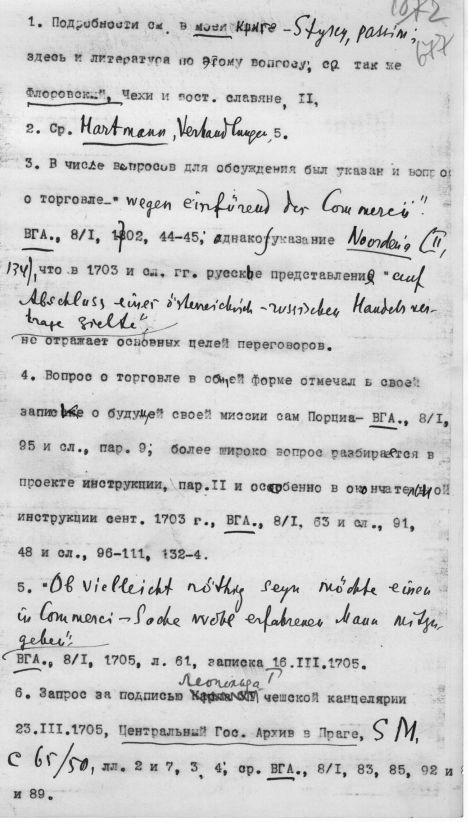 1. Подробности см. в моей книге – Styky, passim;
здесь и литература по этому вопросу; ср так же
Флоровск.", Чехи и вост. славяне, II,
2. Ср. Hartmann, Verhandlungen, 5.
3. В числе вопросов для обсуждения был указан и вопрос
о торговле–" wegen einfürend der Commercii".
ВГА., 8/I, 1302, 44-45; однако указание Noorden'a (II,
134), что в 1703 и сл. гг. русские представления "auf
Abschluss einer österreichisch-russischen Handelsver-
trage zielte",
не отражает основных целей переговоров.
4. Вопрос о торговле в общей форме отмечал в своей
записке о будущей своей миссии сам Порциа– ВГА., 8/I,
95 и сл., пар. 9; более широко вопрос разбирается в
проекте инструкции, пар.II и особенно в окончательной
инструкции сент. 1703 г., ВГА., 8/I, 63 и сл., 91,
48 и сл., 96-111, 132-4.
5. "Ob vielleicht nöthig seyn möchte einen
in Commerci-Sache wohl erfahrenen Mann mitzu-
geben".
ВГА., 8/I, 1705, л. 61, записка 16.III.1705.
Леопольда I
6. Запрос за подписью чешской канцелярии
23.III.1705, Центральный Гос. Архив в Праге, SM,
C 65/50, лл. 2 и 7, 3, 4; ср. ВГА., 8/I, 83, 85, 92 и
и 89.